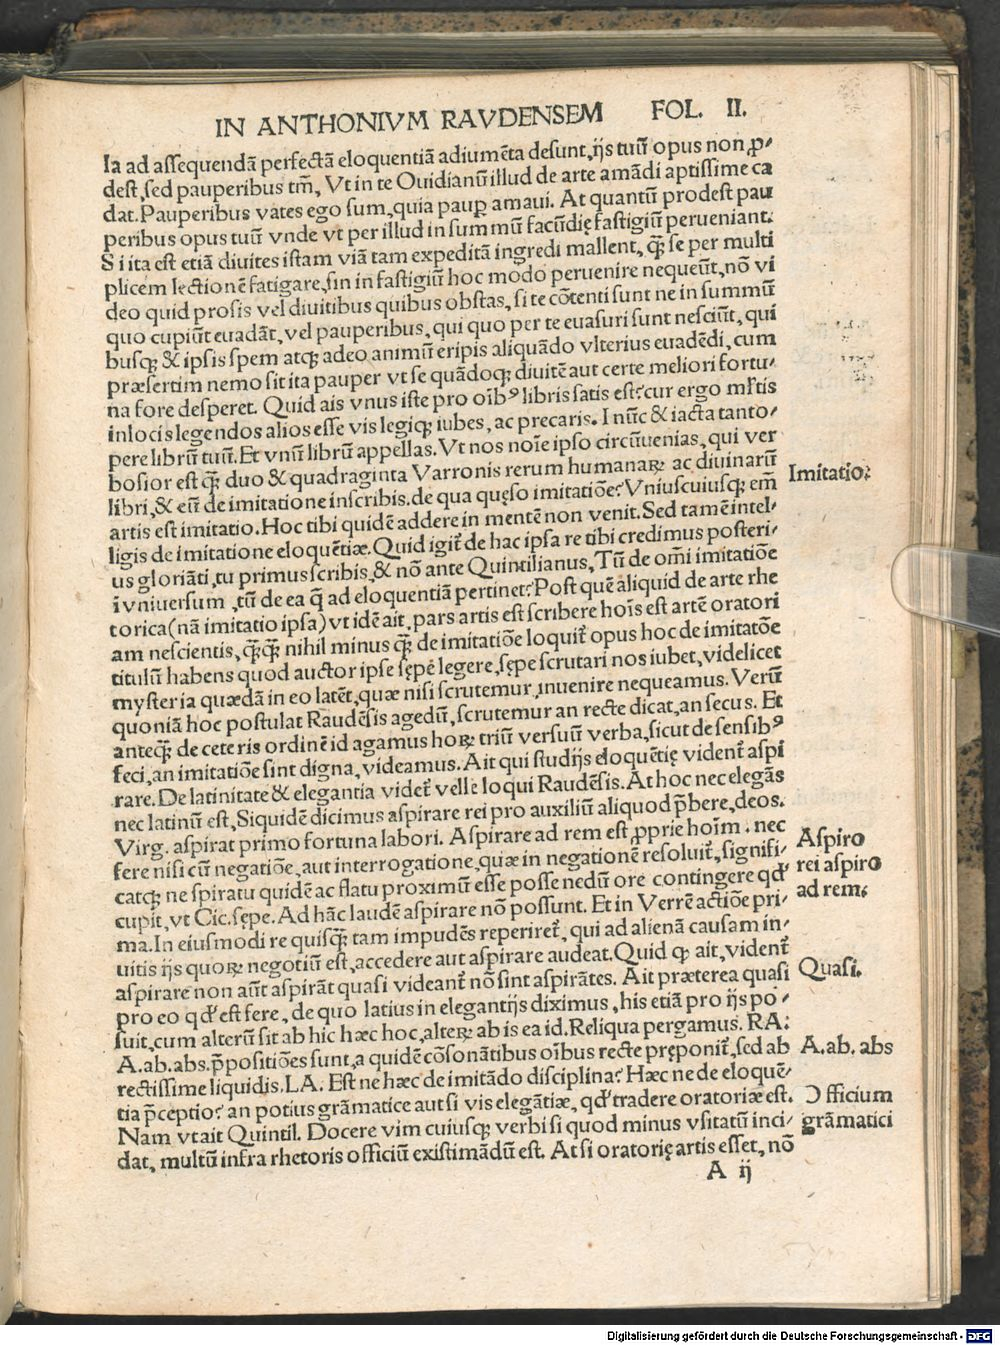 IN ANTHONIVM RAVDENSEM FOL. II.
la ad assequendā perfectā eloquentiā adiumēta desunt, ijs tuū opus non ꝓ-
dest, sed pauperibus tm̄, Vt in te Ouidianū illud de arte amādi aptissime ca
dat. Pauperibus vates ego sum, quia paup̱ amaui. At quantū prodest pau
peribus opus tuū vnde vt per illud in summū facūdię fastigiū perueniant.
Si ita est etiā diuites istam viā tam expeditā ingredi mallent, q̄ꝫ se per multi
plicem lectionē fatigare, sin in fastigiū hoc modo peruenire nequeūt, nō vi
deo quid prosis vel diuitibus quibus obstas, si te cōtenti sunt ne in summū
quo cupiūt euadāt, vel pauperibus, qui quo per te euasuri sunt nesciūt, qui
busqꝫ & ipsis spem atqꝫ adeo animū eripis aliquādo vlterius euadēdi, cum
præsertim nemo sit ita pauper vt se quādoqꝫ diuitē aut certe meliori fortu-
na fore desperet. Quid ais vnus iste pro oībꝰ libris satis est? cur ergo mr̄tis
in locis legendos alios esse vis legiqꝫ iubes, ac precaris. I nūc & iacta tanto-
pere librū tuū. Et vnū librū appellas. Vt nos noīe ipso circūuenias, qui ver
bosior est q̄ꝫ duo & quadraginta Varronis rerum humanaꝝ ac diuinarū
libri, & eū de imitatione inscribis. de qua quęso imitatiōe? Vniuscuiusqꝫ em̄
artis est imitatio. Hoc tibi quidē addere in mentē non venit. Sed tamē intel-
ligis de imitatione eloquētiæ. Quid igit̄ de hac ipsa re tibi credimus posteri-
us gloriāti, tu primus scribis, & nō ante Quintilianus, Tū de om̄i imitatiōe
in vniuersum, tū de ea q̄ ad eloquentiā pertinet? Post quē aliquid de arte rhe
torica (nā imitatio ipsa) vt idē ait, pars artis est scribere hoīs est artē oratori
am nescientis, q̄ꝫq̄ꝫ nihil minus q̄ꝫ de imitatiōe loquit̄ opus hoc de imitatōe
titulū habens quod auctor ipse sępe legere, sępe scrutari nos iubet, videlicet
mysteria quædā in eo latēt, quæ nisi scrutemur inuenire nequeamus. Verū
quoniā hoc postulat Raudēsis agedū, scrutemur an recte dicat, an secus. Et
anteqꝫ de ceteris ordinē id agamus hoꝝ triū versuū verba, sicut de sensibꝰ
feci, an imitatiōe sint digna, videamus. Ait qui studijs eloquētię vident̄ aspi
rare. De latinitate & elegantia videt̄ velle loqui Raudēsis. At hoc nec elegās
nec latinū est, Siquidē dicimus aspirare rei pro auxiliū aliquod p̄bere, deos.
Virg. aspirat primo fortuna labori. Aspirare ad rem est ꝓprie hoīm. nec
fere nisi cū negatiōe, aut interrogatione, quæ in negationē resoluit̄, signifi-
catqꝫ ne spiratu quidē ac flatu proximū esse posse nedū ore contingere qd̄
cupit, vt Cic. sępe. Ad hāc laudē aspirare nō possunt. Et in Verrē actiōe pri-
ma. In eiusmodi re quisq̄ꝫ tam impudēs reperiret̄, qui ad alienā causam in-
uitis ijs quoꝝ negotiū est, accedere aut aspirare audeat. Quid qꝫ ait, vident̄
aspirare non aūt aspirāt quasi videant̄ nō sint aspirātes. Ait præterea quasi
pro eo qd̄ est fere, de quo latius in elegantijs diximus, his etiā pro ijs po-
suit, cum alterū sit ab hic hæc hoc, alteꝝ ab is ea id. Reliqua pergamus. RA:
A. ab. abs. p̄positiōes sunt, a quidē cōsonātibus oībus recte pręponit̄, sed ab
rectissime liquidis. LA. Est ne hæc de imitādo disciplina? Hæc ne de eloquē-
tia p̄ceptio? an potius grāmatice aut si vis elegātiæ, qd̄ tradere oratoriæ est.
Nam vt ait Quintil. Docere vim cuiusqꝫ verbi si quod minus vsitatū inci-
dat, multū infra rhetoris officiū existimādū est. At si oratorię artis esset, nō
A ij
Imitatio:
Aspiro
rei aspiro
ad rem:
Quasi.
A. ab. abs
Officium
grāmatici
Digitalisierung gefördert durch die Deutsche Forschungsgemeinschaft - DFG